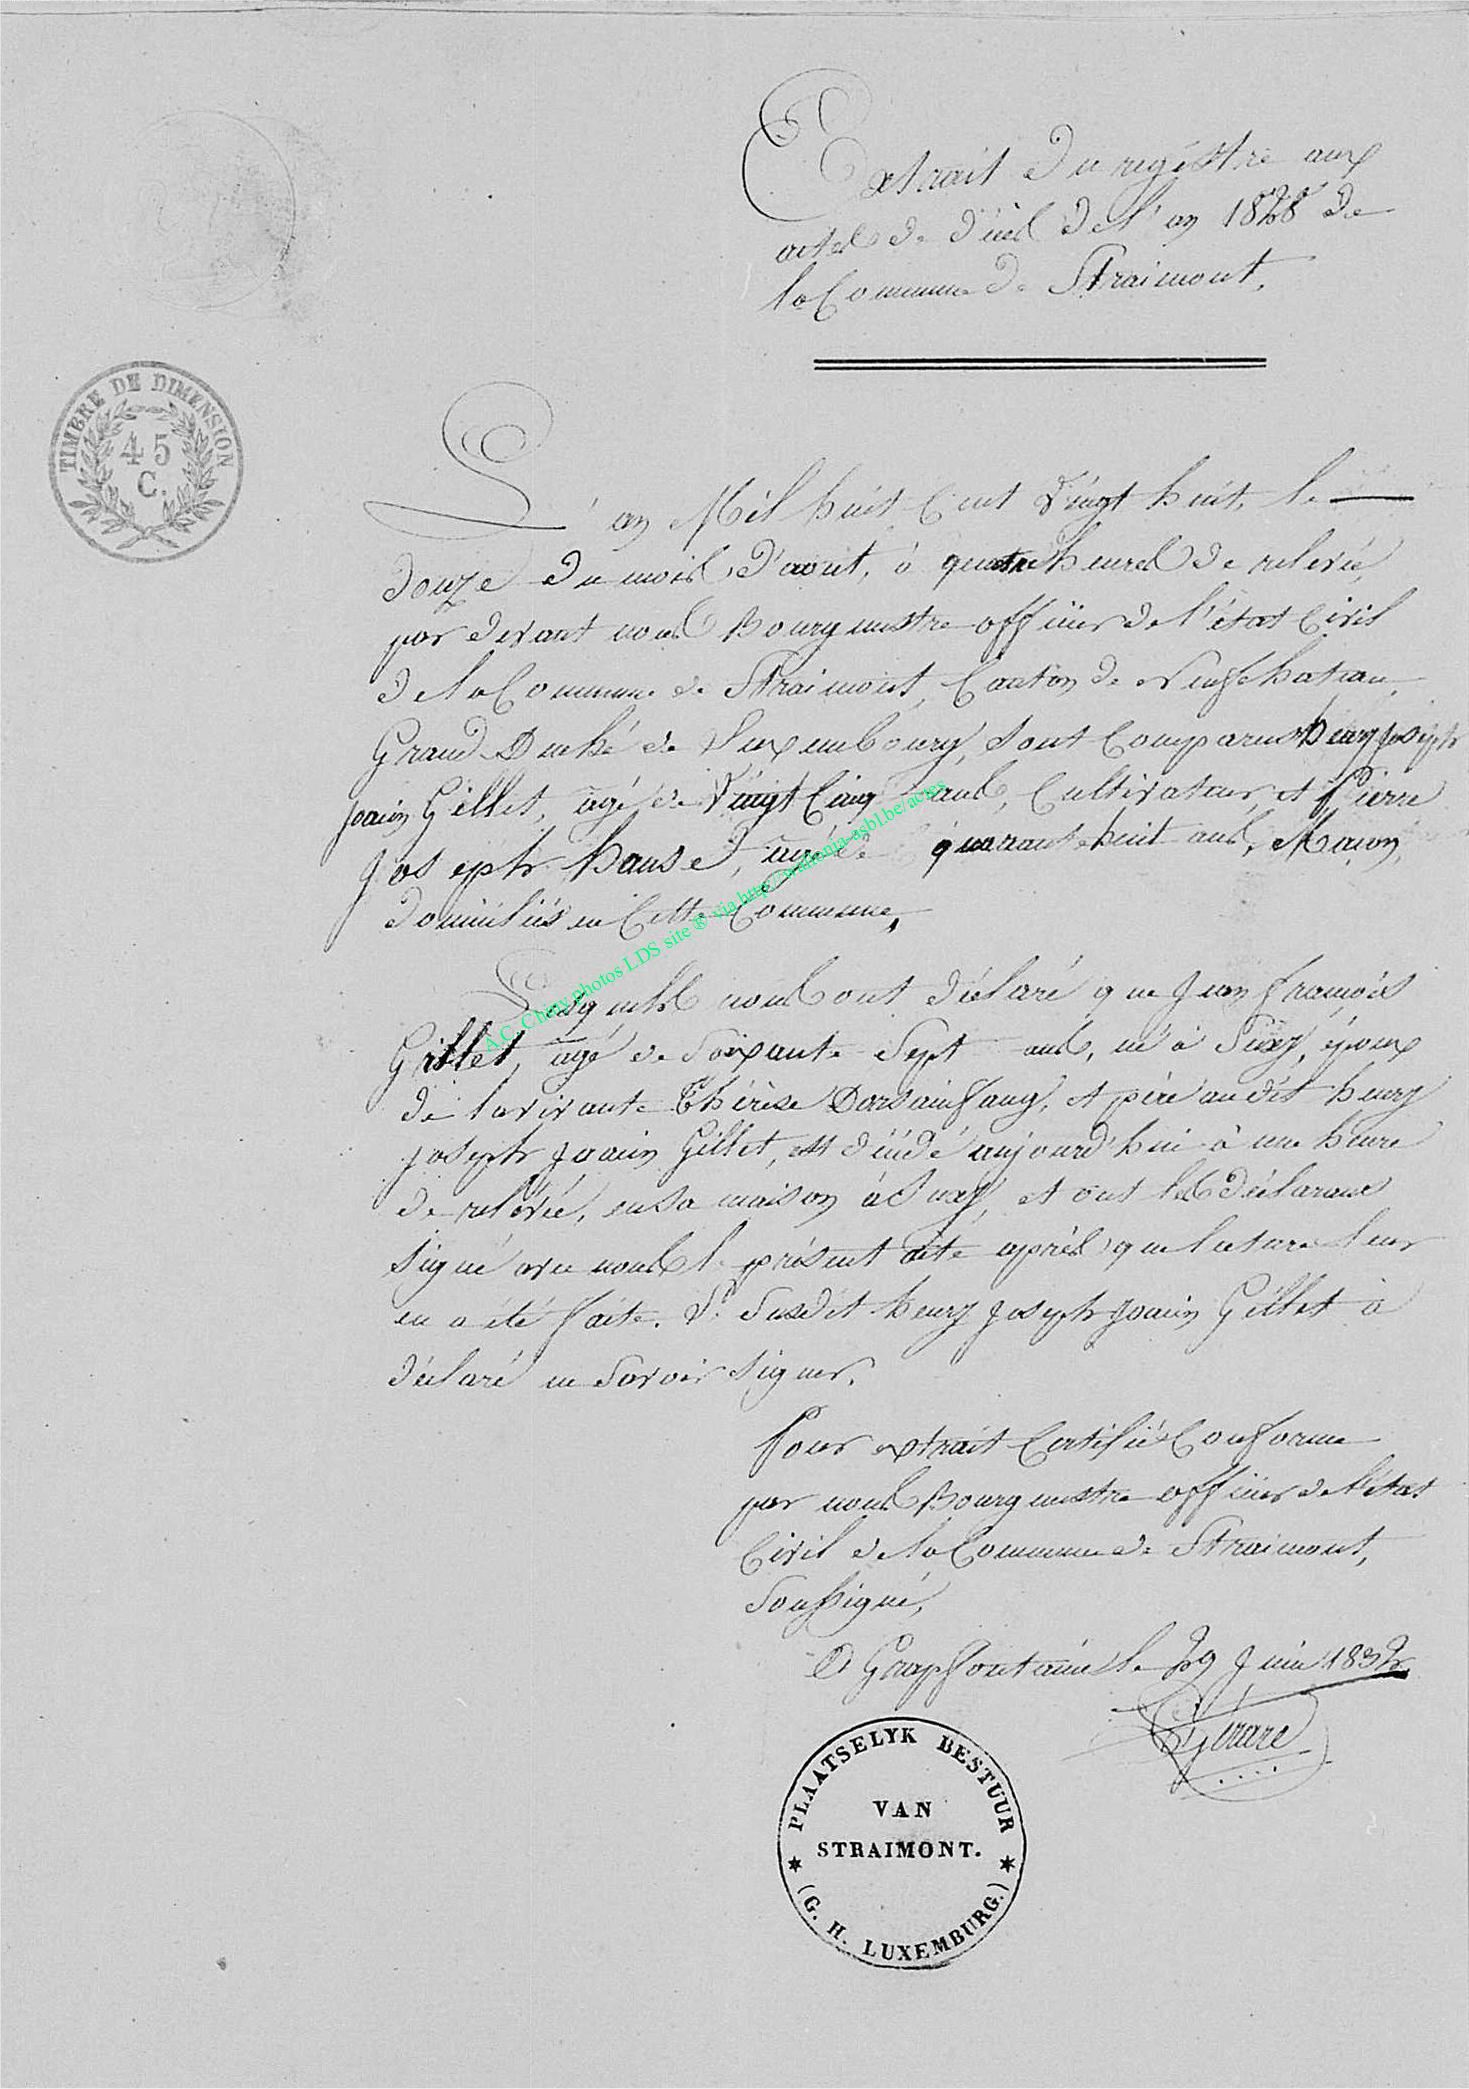 Extrait du régistre aux
actes de décès de l'an 1828 de
la Commune de Straimont.
TIMBRE DE DIMENSION
45
C.
L'an Mil huit Cent Vingt huit, le
douze du mois d'aout, à quatre heures de relevée,
par devant nous Bourgmestre officier de l'état Civil
de la Commune de Straimont, Canton de Neufchateau,
Grand Duché de Luxembourg, sont Comparus henry joseph
joacin Gillet, agé de Vingt Cinq ans, Cultivateur, et Pierre
Joseph hanse, agé de quarante huit ans, Maçon,
domiciliés en Cette Commune,
Lesquels nous ont déclaré que Jean françois
Gillet, agé de Soixante Sept ans, né à Suxy, époux
de la vivante Thérèse Dorsainfang, et père au dit henry
joseph joacin Gillet, est décédé aujourd'hui à une heure
de relevée, en sa maison à Suxy, et ont les déclarans
signé avec nous le présent acte après que lecture leur
en a été faite. Le Susdit henry joseph joacin Gillet à
déclaré ne Savoir signer.
Pour extrait Certifié Conforme
par nous Bourgmestre officier de l'état
Civil de la Commune de Straimont,
Soussigné,
A Grapfontaine le 29 Juin 1832
Gérard
PLAATSELYK BESTUUR
VAN
STRAIMONT.
(G. H. LUXEMBURG.)
A.C. Chiny photos LDS site ® via http://wallonia-asbl.be/actes